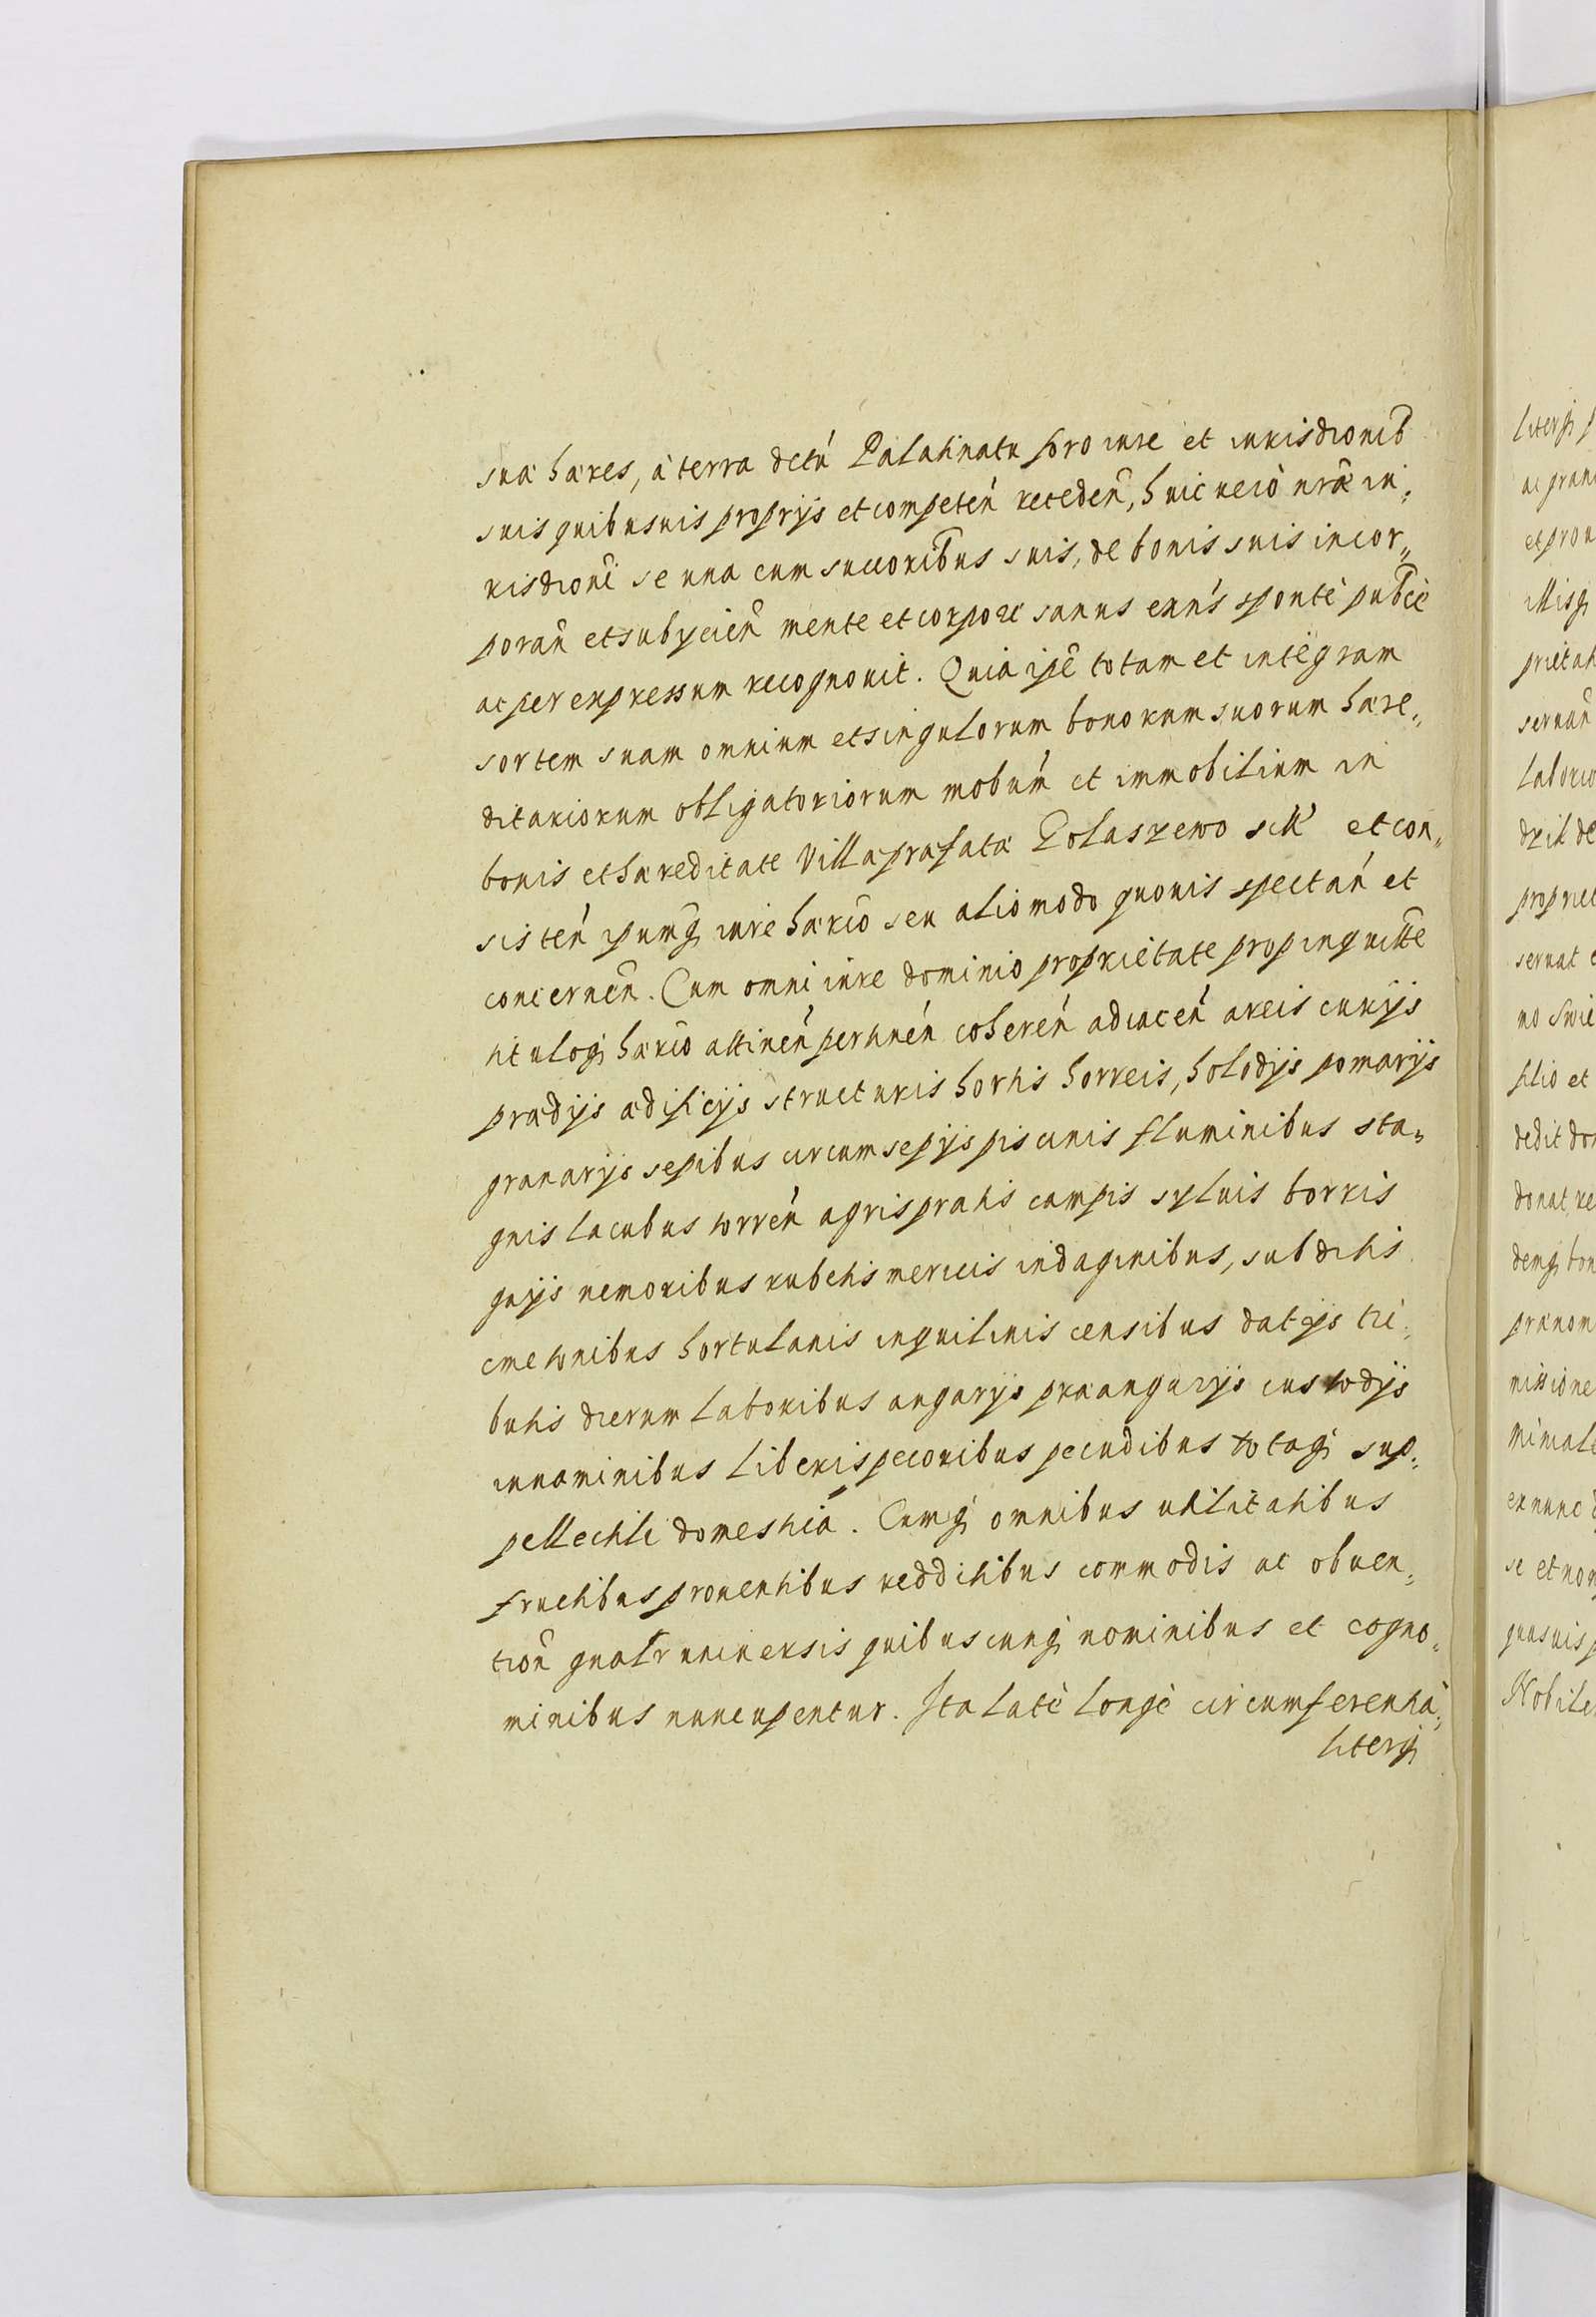 suæ hæres, à terra dctú Palatinatu foro iure et iurisdionib
suis quibusuis proprijs et competeń recedeñ, huic verò nrǣ iu„
risdioni se una cum succoribus suis, de bonis suis incor„
porañ et subijcieñ mente et corpore sanus exńs sponte publcè
ac per expressum recognouit. Quia ipe totam et integram
sortem suam omnium et singulorum bonorum suorum hære„
ditariorum obligatoriorum mobiúm et immobilium in
bonis et hæreditate Villæ præfatæ Polaszewo sitt et con„
sisteń ipumq iure hærio seu alio modo quouis spectań et
concerneñ. Cum omni iure dominio proprietate propinquitte
tituloq hærio attineń pertineń cohereń adiaceń areis curijs
prædijs ædificijs structuris hortis horreis, holodijs pomarijs
granarijs sepibus circumsepijs piscinis fluminibus sta„
gnis lacubus torreń agris pratis campis syluis borris
gaijs nemoribus rubetis mericis indaginibus, subditis
cmetonibus hortulanis inquilinis censibus datijs tri„
butis dierum laboribus angarijs præangarijs custodijs
innominibus liberis pecoribus pecudibus totaq sup„
pellectili domestica. Cumq omnibus utilitatibus
fructibus prouentibus reddititbus commodis ac obuen„
tioñ gnalr uniuersis quibuscunq nominibus et cogno„
minibus nuncupentur. Ita latè longè circumferentia„
literq
literq p
ac gran
et prou
illisq
prietat
seruañ
laborio
dzil de
propriet
seruat e
no Swie
filio et
dedit don
donat re
demq bon
prænom
missione
nimale
ex nunc d
se et nom
quasuis p
Nobile